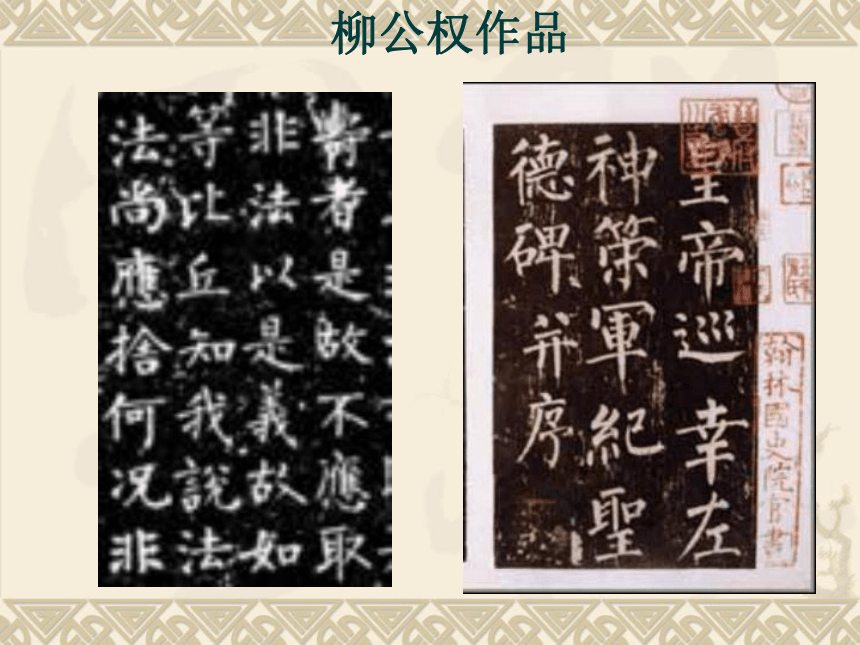 柳公权作品
壽者是故不應取
非法以是義故如
等比丘知我說法
法尚應捨何況非
皇帝巡幸左
神策軍紀聖
德碑并序
翰林國史院官書